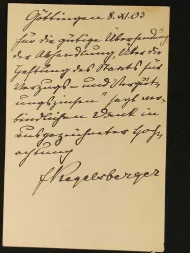 Göttingen 8. XI. 03
Für die gütige Übersendung
der Abhandlung „Über die
Haftung des Staats für
Verzugs- und Vergüt-
ungszinsen“ sagt ver-
bindlichen Dank in
ausgezeichneter Hoch-
achtung
F Regelsberger